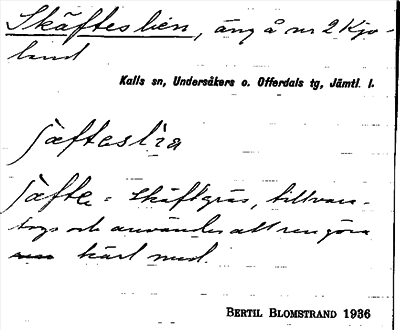 Skäfteslien, äng å nr 2 Kjo-
land
Kalls sn, Undersåkers o. Offerdals tg, Jämtl. l.
ʃäftaslia
ʃäfte = skäftgräs, tillvara-
togs och användes att rengöra
kärl med.
BERTIL BLOMSTRAND 1936